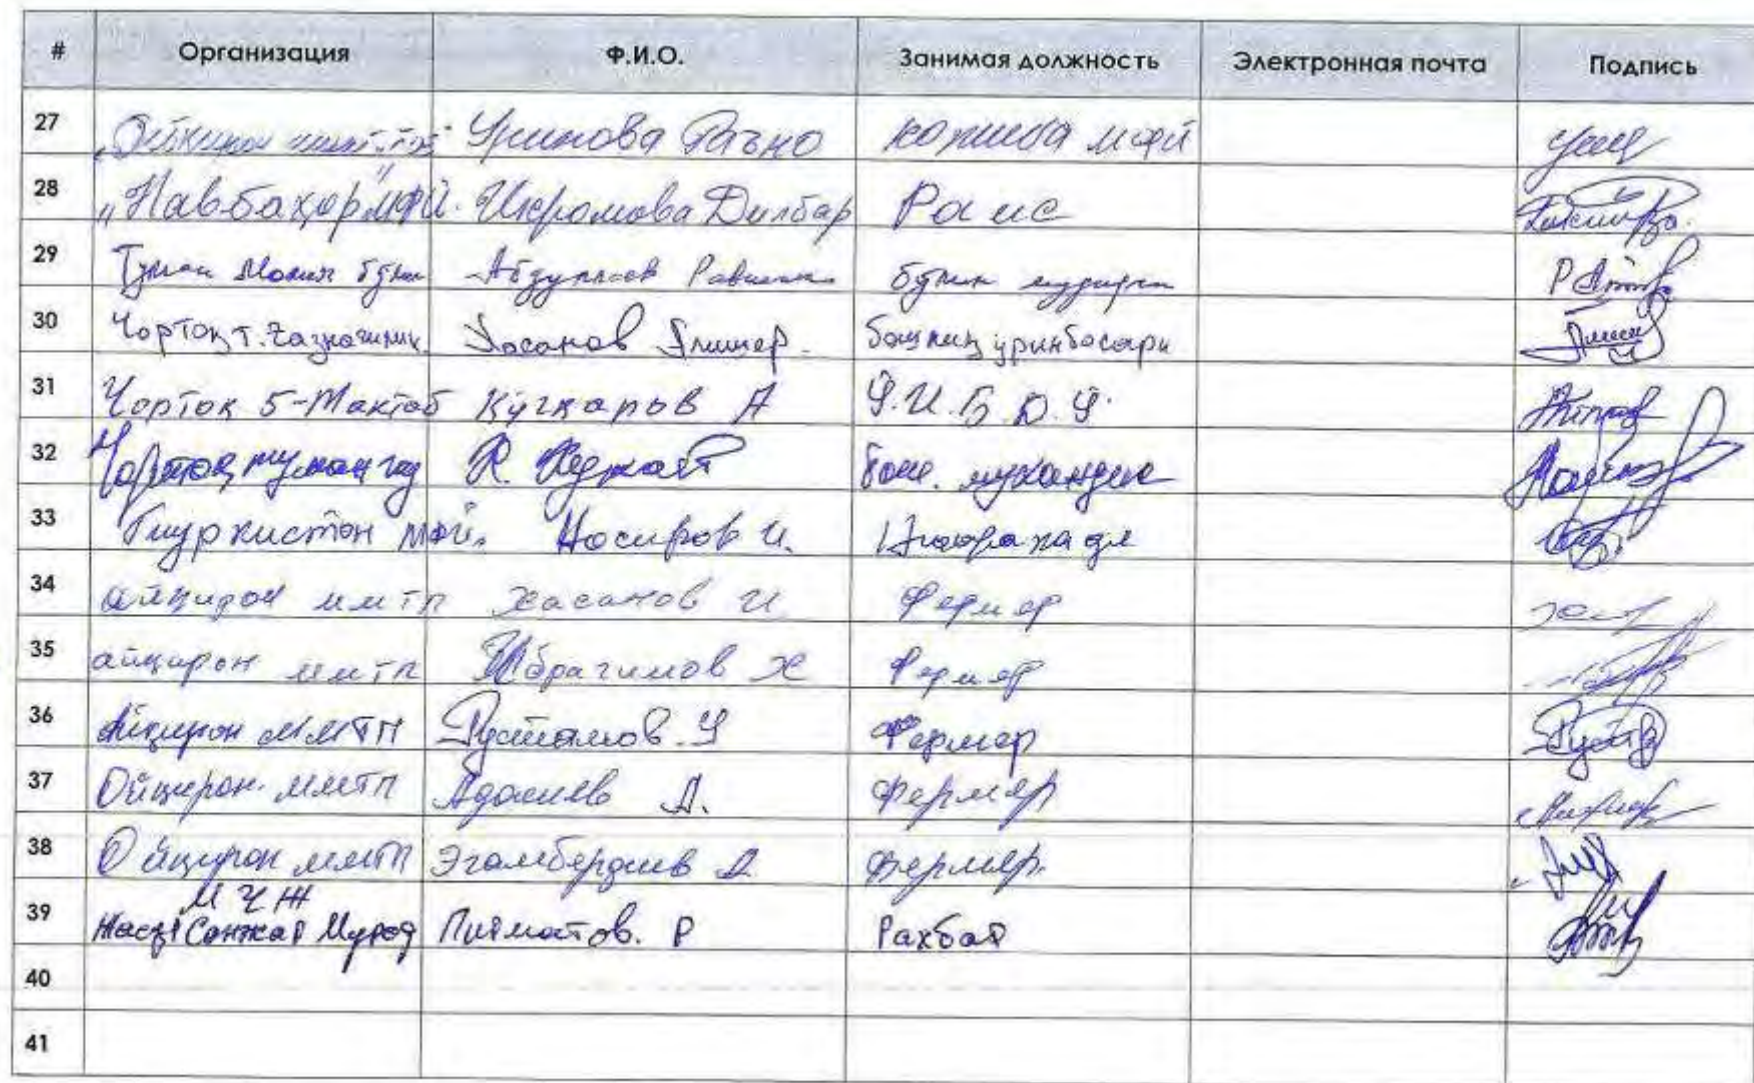 # Организация Ф.И.О. Занимая должность Электронная почта Подпись
27 Уринова Раъно котиба мфй
28 "Навбаҳор" мфй. Икромова Дилбар Раис
29 Туман Молия бўлим Абдуллаев Равшан бўлим мудири
30 Чортоқ т. Ғазначилик Хасанов Алишер. бошлиқ ўринбосари
31 Чортоқ 5-Мактаб Қўчқаров А Ў.И.Б.Д.Ў.
32 Чортоқ туман газ бош. муҳандис
33 Туркистон мфй. Носиров И.
34 айқирон ммтп Хасанов И Фермер
35 айқирон ммтп Ибрагимов Х Фермер
36 Айқирон ММТП Рустамов. У Фермер
37 Ойқирон. ммтп А. Фермер
38 Ойқирон ммтп Эгамбердиев А Фермер.
МЧЖ
39 Санжар Мурод Пирматов. Р Рахбар
40
41